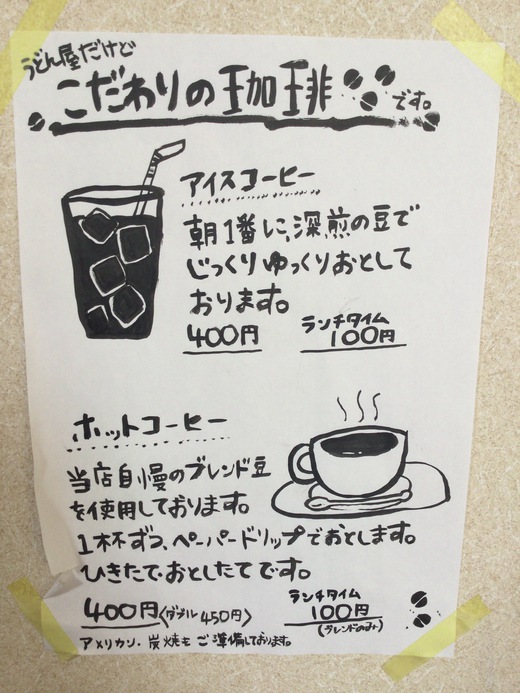 うどん屋だけど
こだわりの珈琲
です。
アイスコーヒー
朝1番に、深煎の豆で
じっくりゆっくりおとして
おります。
400円
ランチタイム
100円
ホットコーヒー
当店自慢のブレンド豆
を使用しております。
1杯ずつ、ペーパードリップでおとします。
ひきたて・おとしたてです。
400円〈ダブル450円〉
ランチタイム
100円
(ブレンドのみ)
アメリカン・炭焼も ご準備しております。